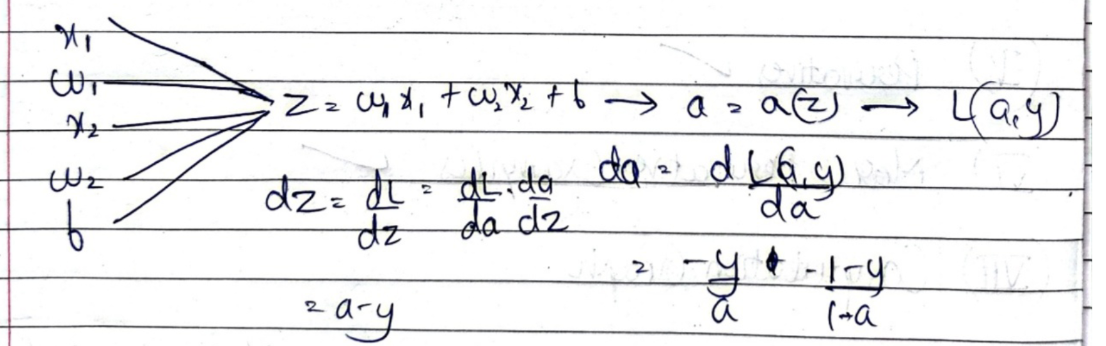 x₁
ω₁
x₂
ω₂
b
z = ω₁x₁ + ω₂x₂ + b → a = a(z) → L(a,y)
dz = dL/dz = dL/da · da/dz
= a-y
da = d L(a,y)/da
= -y/a + -1-y/1-a